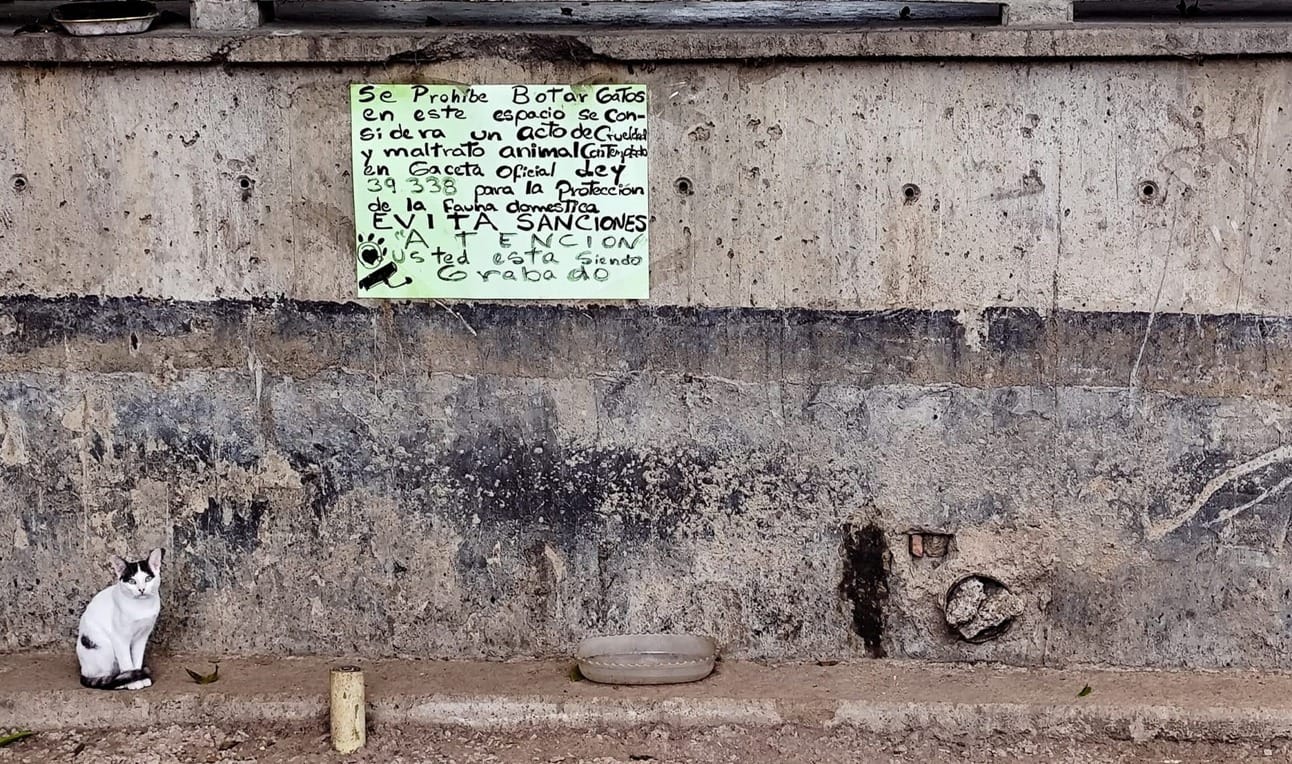 Se Prohibe Botar Gatos
en este espacio se con-
sidera un acto de Crueldad
y maltrato animal Contemplado
en Gaceta Oficial Ley
39 338 para la Protección
de la fauna domestica
EVITA SANCIONES
"ATENCION
usted esta siendo
Grabado